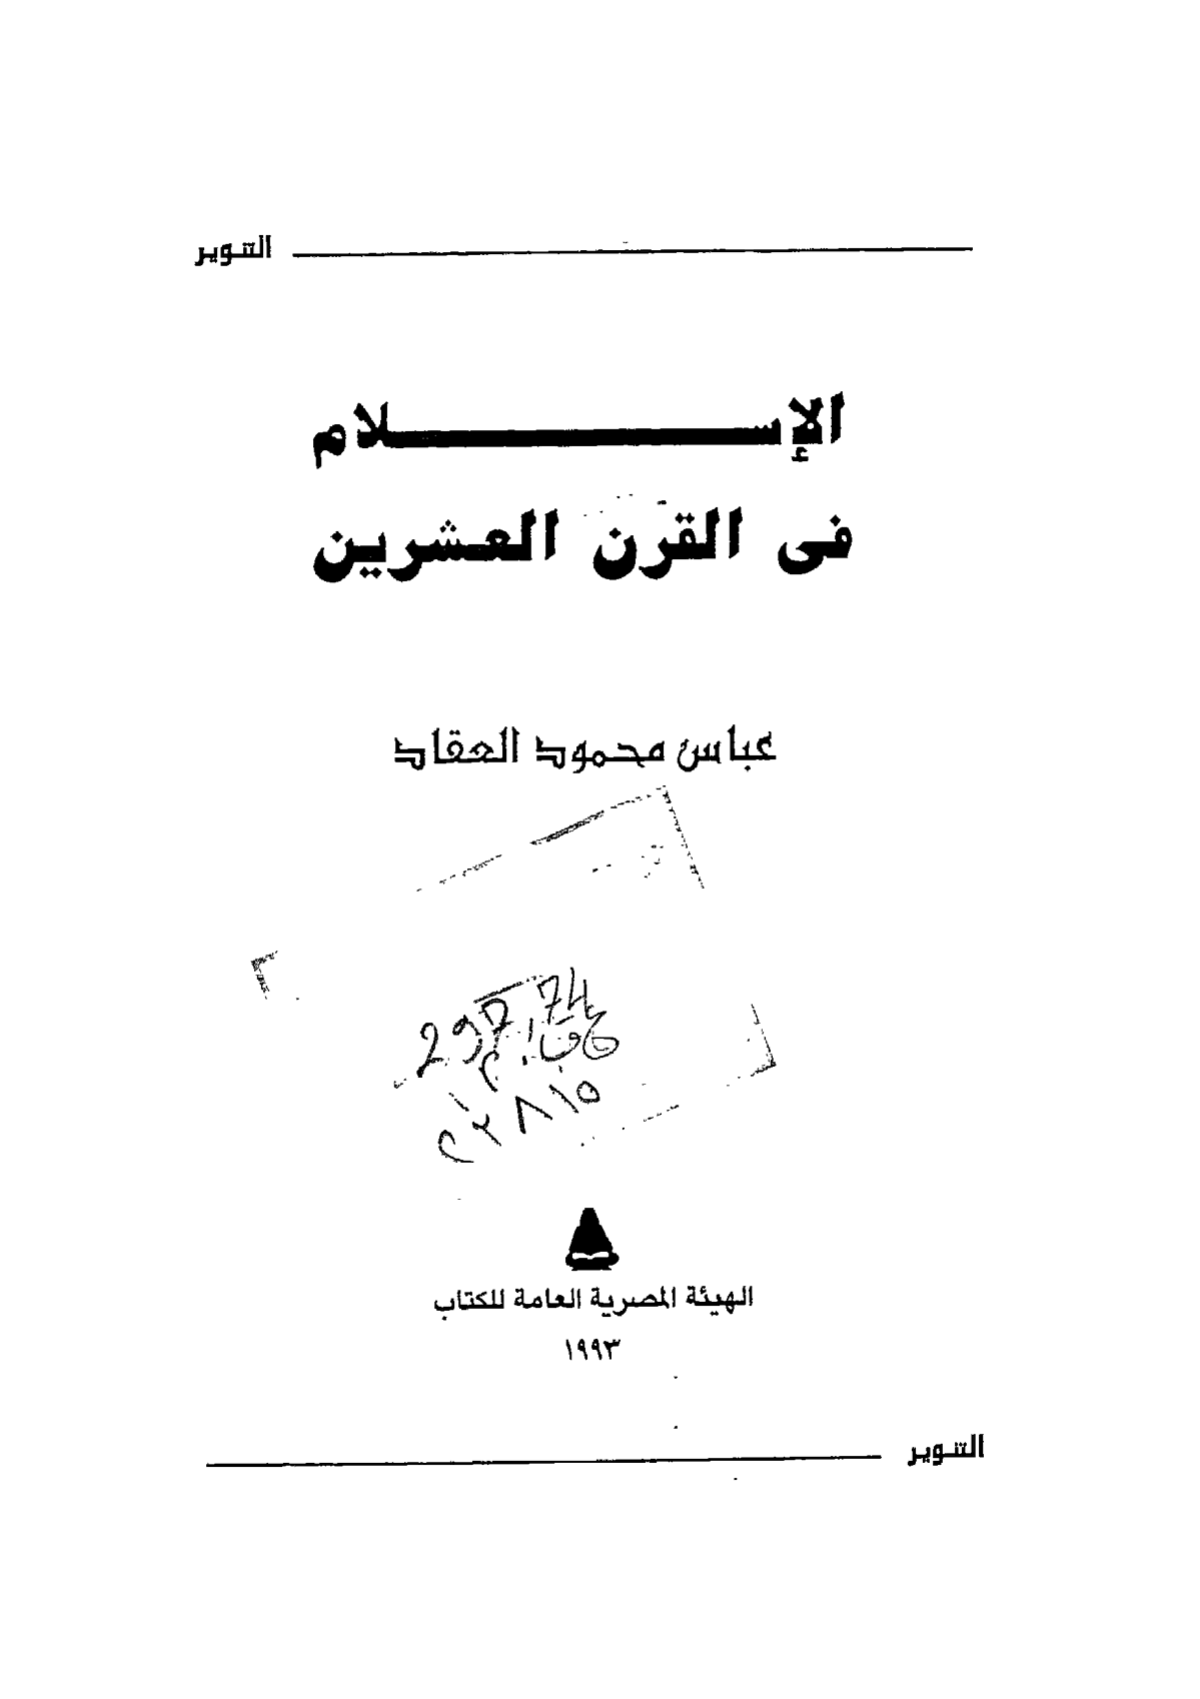 التنوير
الإســـــــــــــلام
فى القرن العشرين
عباس محمود العقاد
297.74
الهيئة المصرية العامة للكتاب
١٩٩٣
التنوير